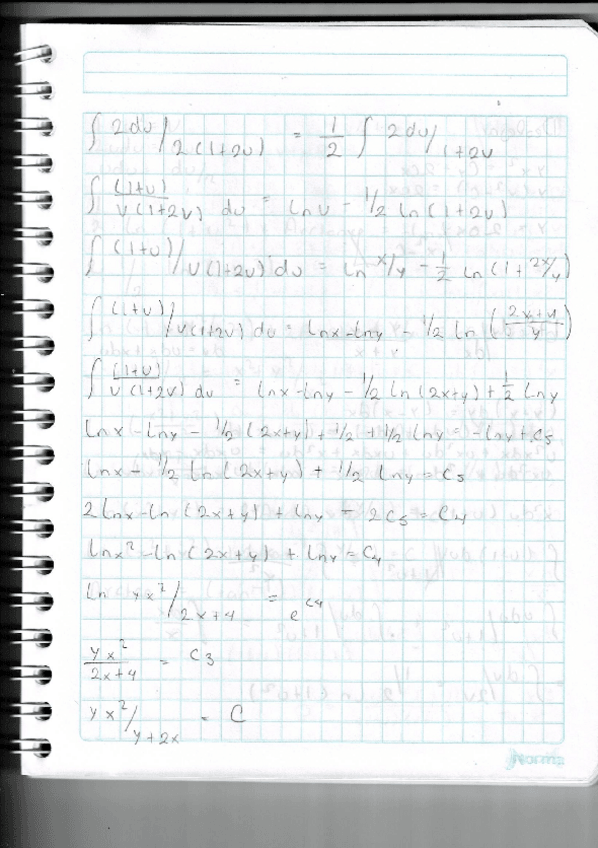 ∫ 2du / 2(1+2v) = 1/2 ∫ 2du / 1+2v
∫ (1+v) / v(1+2v) dv = lnv - 1/2 ln(1+2v)
∫ (1+v) / v(1+2v) dv = ln x/y - 1/2 ln(1+ 2x/y)
∫ (1+v) / v(1+2v) dv = lnx-lny - 1/2 ln (2x+y / y)
∫ (1+v) / v(1+2v) dv = lnx-lny - 1/2 ln(2x+y) + 1/2 lny
lnx-lny - 1/2 (2x+y) + 1/2 + 1/2 lny = -lny + C5
lnx - 1/2 ln(2x+y) + 1/2 lny = C5
2lnx-ln(2x+y) + lny = 2C5 = C4
lnx² - ln(2x+y) + lny = C4
ln yx² / 2x+y = e^C4
yx² / 2x+y = C3
yx² / y+2x = C
Norma